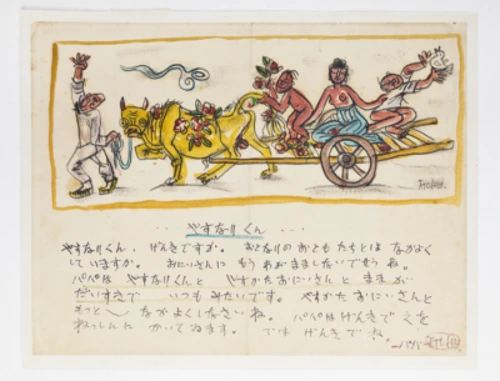 ‥やすなりくん‥‥
やすなりくん、げんきですか。おとなりのおともだちとは なかよく
していますか。おにいさんに もう わがまましないでせう ね。
パパは やすなりくんと やすかたおにいさんと ままが
だいすきで いつも みたいです。やすかた おにいさんと
もっと〜 なかよくしなさい ね。パパはげんきで えを
ねっしんに かいて ゐます。では げんき で ね。
パパ